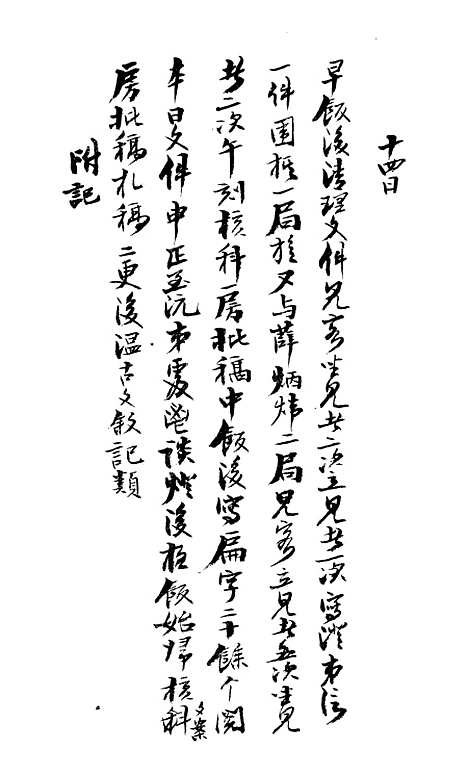 十四日
早飯後清理文件見客坐見者二次立見者一次寫澄弟信
一件圍棋一局旋又与薛炳煒二局見客立見者五次坐見
者二次午刻核科房批稿中飯後寫扁字二十餘个閱
本日文件申正至沅弟處鬯談燈後飯始歸核科文案
房批稿札稿二更後温古文敘記類
附記